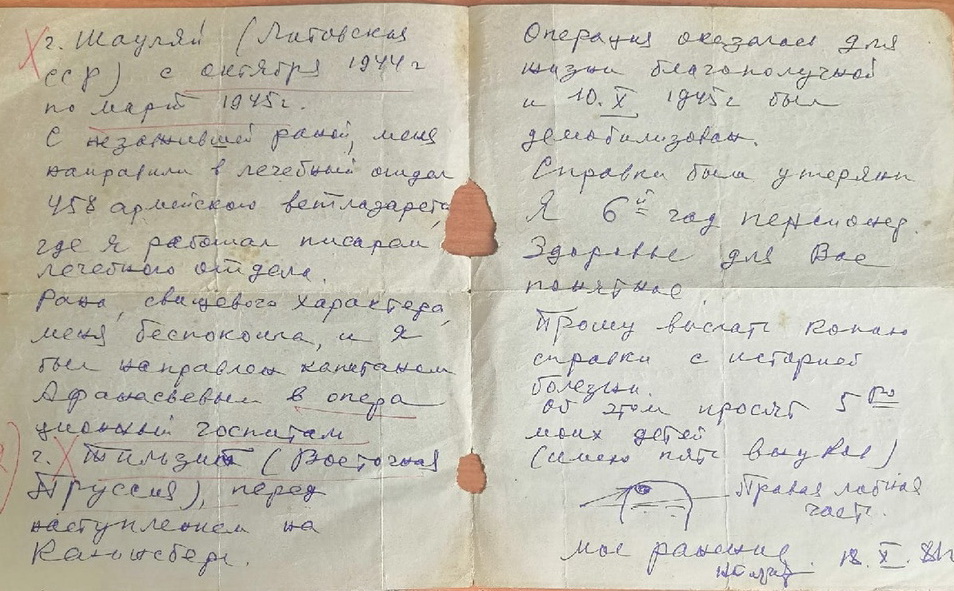 г. Шауляй (Литовская
ССР) с октября 1944 г
по март 1945 г.
С незажившей раной, меня
направили в лечебный отдел
458 армейского ветлазарета,
где я работал писарем
лечебного отдела.
Рана, свищевого характера,
меня беспокоила, и я
был направлен капитаном
Афанасьевым в опера
ционный госпиталь
г. Тильзит (Восточная
Пруссия), перед
наступлением на
Кенигсберг.
Операция оказалась для
жизни благополучной
и 10. X 1945 г был
демобилизован.
Справки были утеряны
Я 6й год пенсионер.
Здоровье для Вас
понятное.
Прошу выслать копию
справки с историей
болезни.
Об этом просят 5ро
моих детей
(имею пять внуков)
Правая лобная
часть.
мое ранение
18. X. 81г